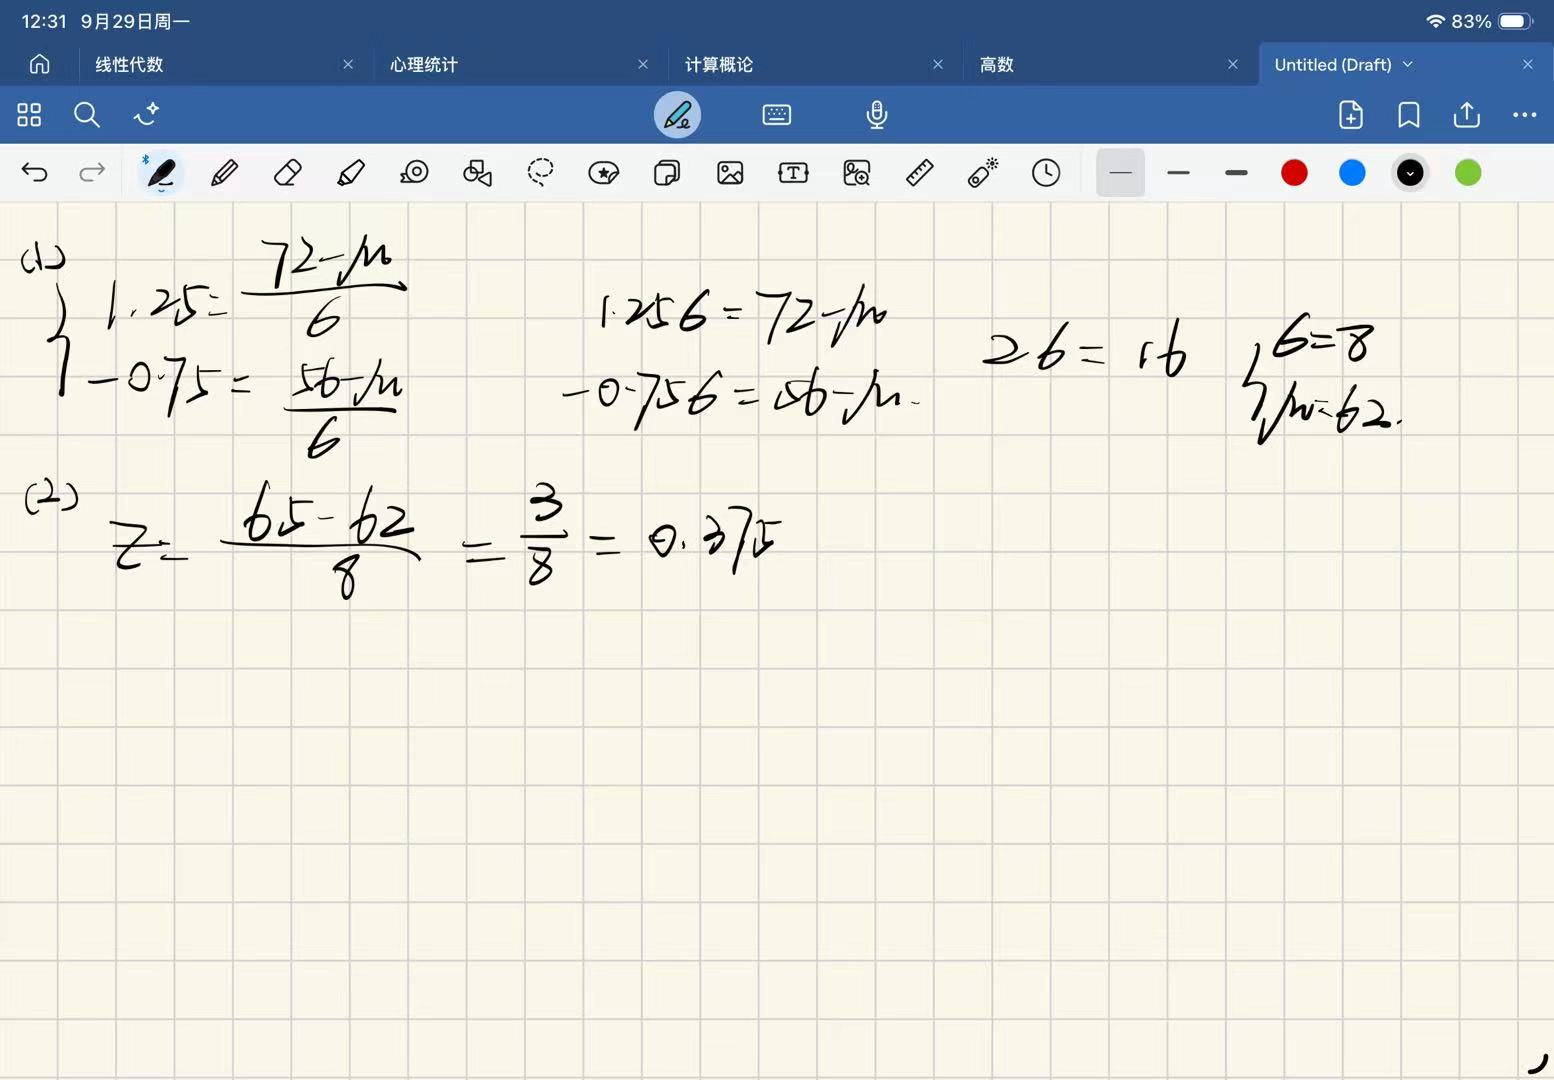 12:31 9月29日周一 83%
线性代数 心理统计 计算概论 高数 Untitled (Draft)
(1)
1.25=(72-μ)/σ
-0.75=(56-μ)/σ
1.25σ=72-μ
-0.75σ=56-μ.
2σ=16
σ=8
μ=62.
(2)
Z=(65-62)/8=3/8=0.375